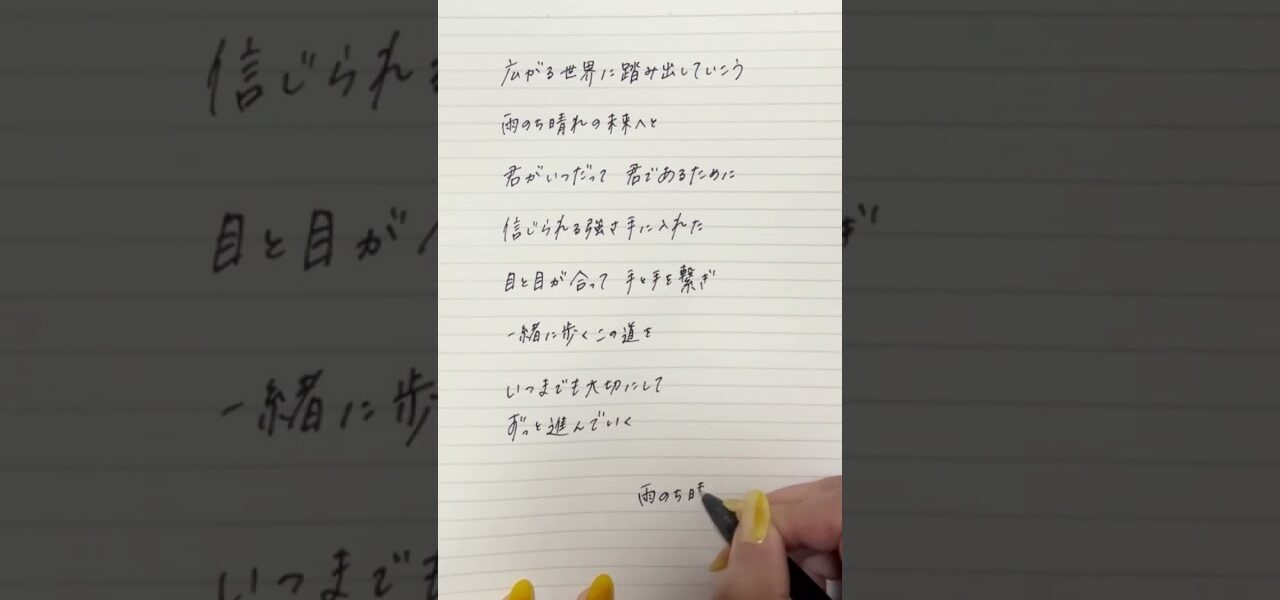 広がる世界に踏み出していこう
雨のち晴れの未来へと
君がいつだって 君であるために
信じられる強さ手に入れた
目と目が合って 手と手を繋ぎ
一緒に歩くこの道を
いつまでも大切にして
ずっと進んでいく
雨のち